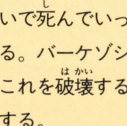 いで死んでいっ
る。バーケゾシ
これを破壊する
する。